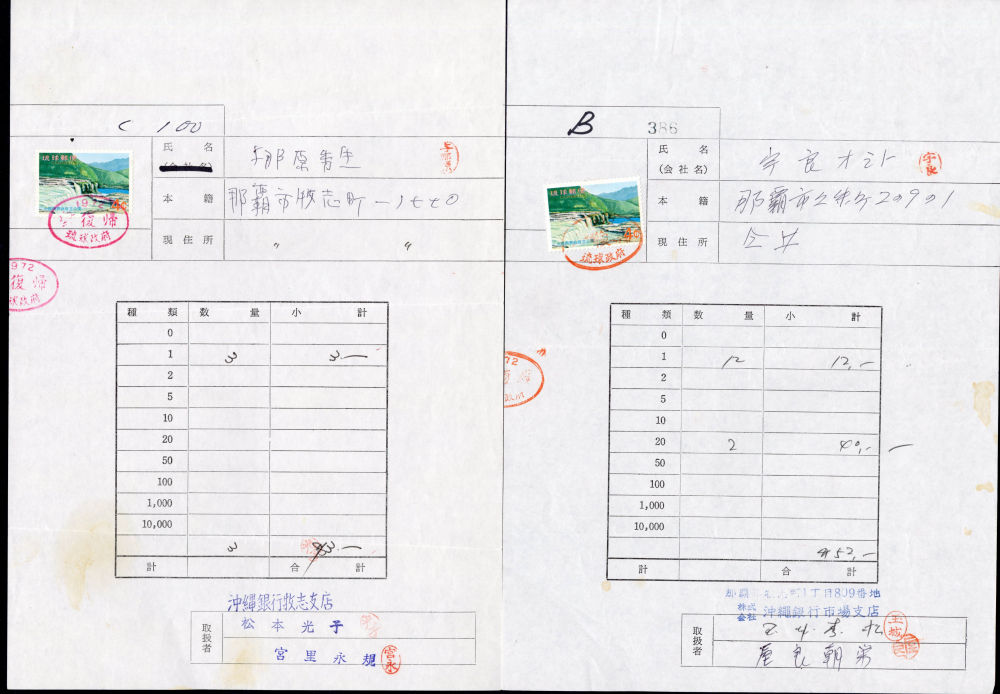 C 100
琉球郵便
1972
復帰
琉球政府
氏 名
(会社名)
本 籍
那覇市牧志町一ノ七七〇
現 住 所
〃 〃
1972
復帰
球政府
種 類 数 量 小 計
0
1 3 3.—
2
5
10
20
50
100
1,000
10,000
3 3.—
計 合 計
沖縄銀行牧志支店
取扱者
松本光子
宮里永規
宮永
B 386
琉球郵便
琉球政府
氏 名
(会社名)
宇良
本 籍
那覇市
現 住 所
仝上
72
種 類 数 量 小 計
0
1 12 12.—
2
5
10
20 2 40.— —
50
100
1,000
10,000
52.—
計 合 計
丁目809番地
株式会社 沖縄銀行市場支店
取扱者
玉城
屋良朝栄